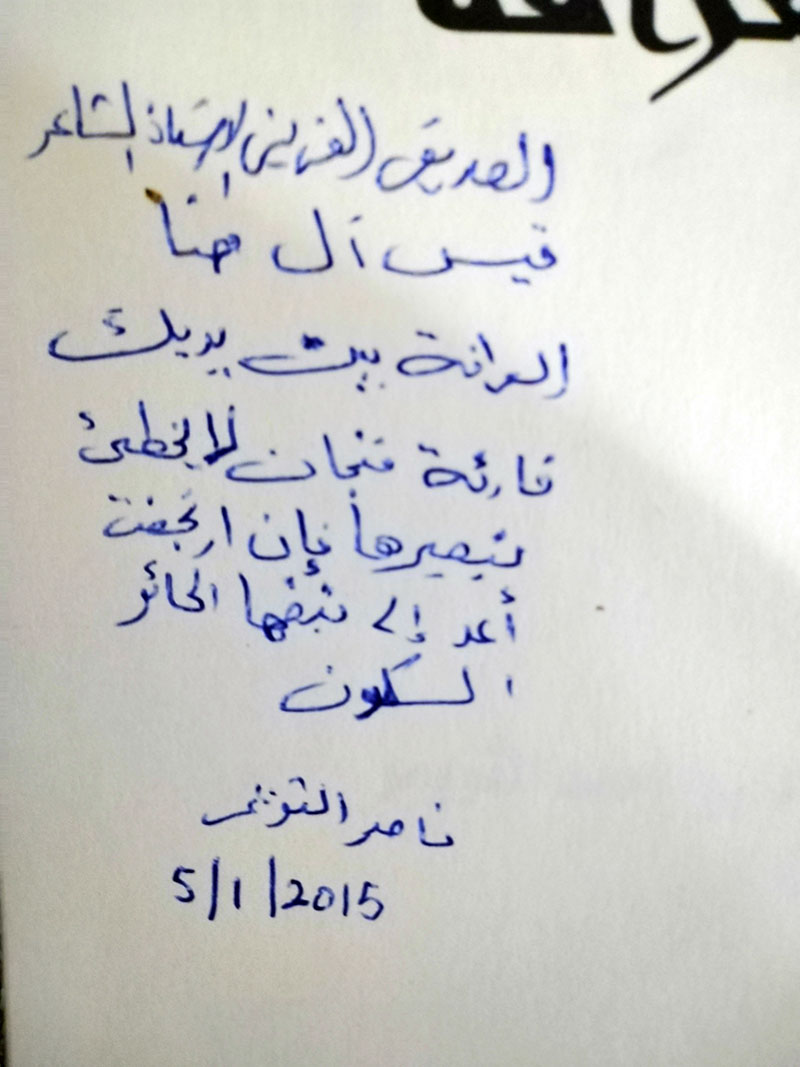 الصديق العزيز الأستاذ الشاعر
قيس آل حنا
العرافة بين يديك
قارئة فنجان لا يخطئ
تبصيرها فإن ارتجفت
أعد إلى نبضها الحائر
السكون
ناصر
5/1/2015